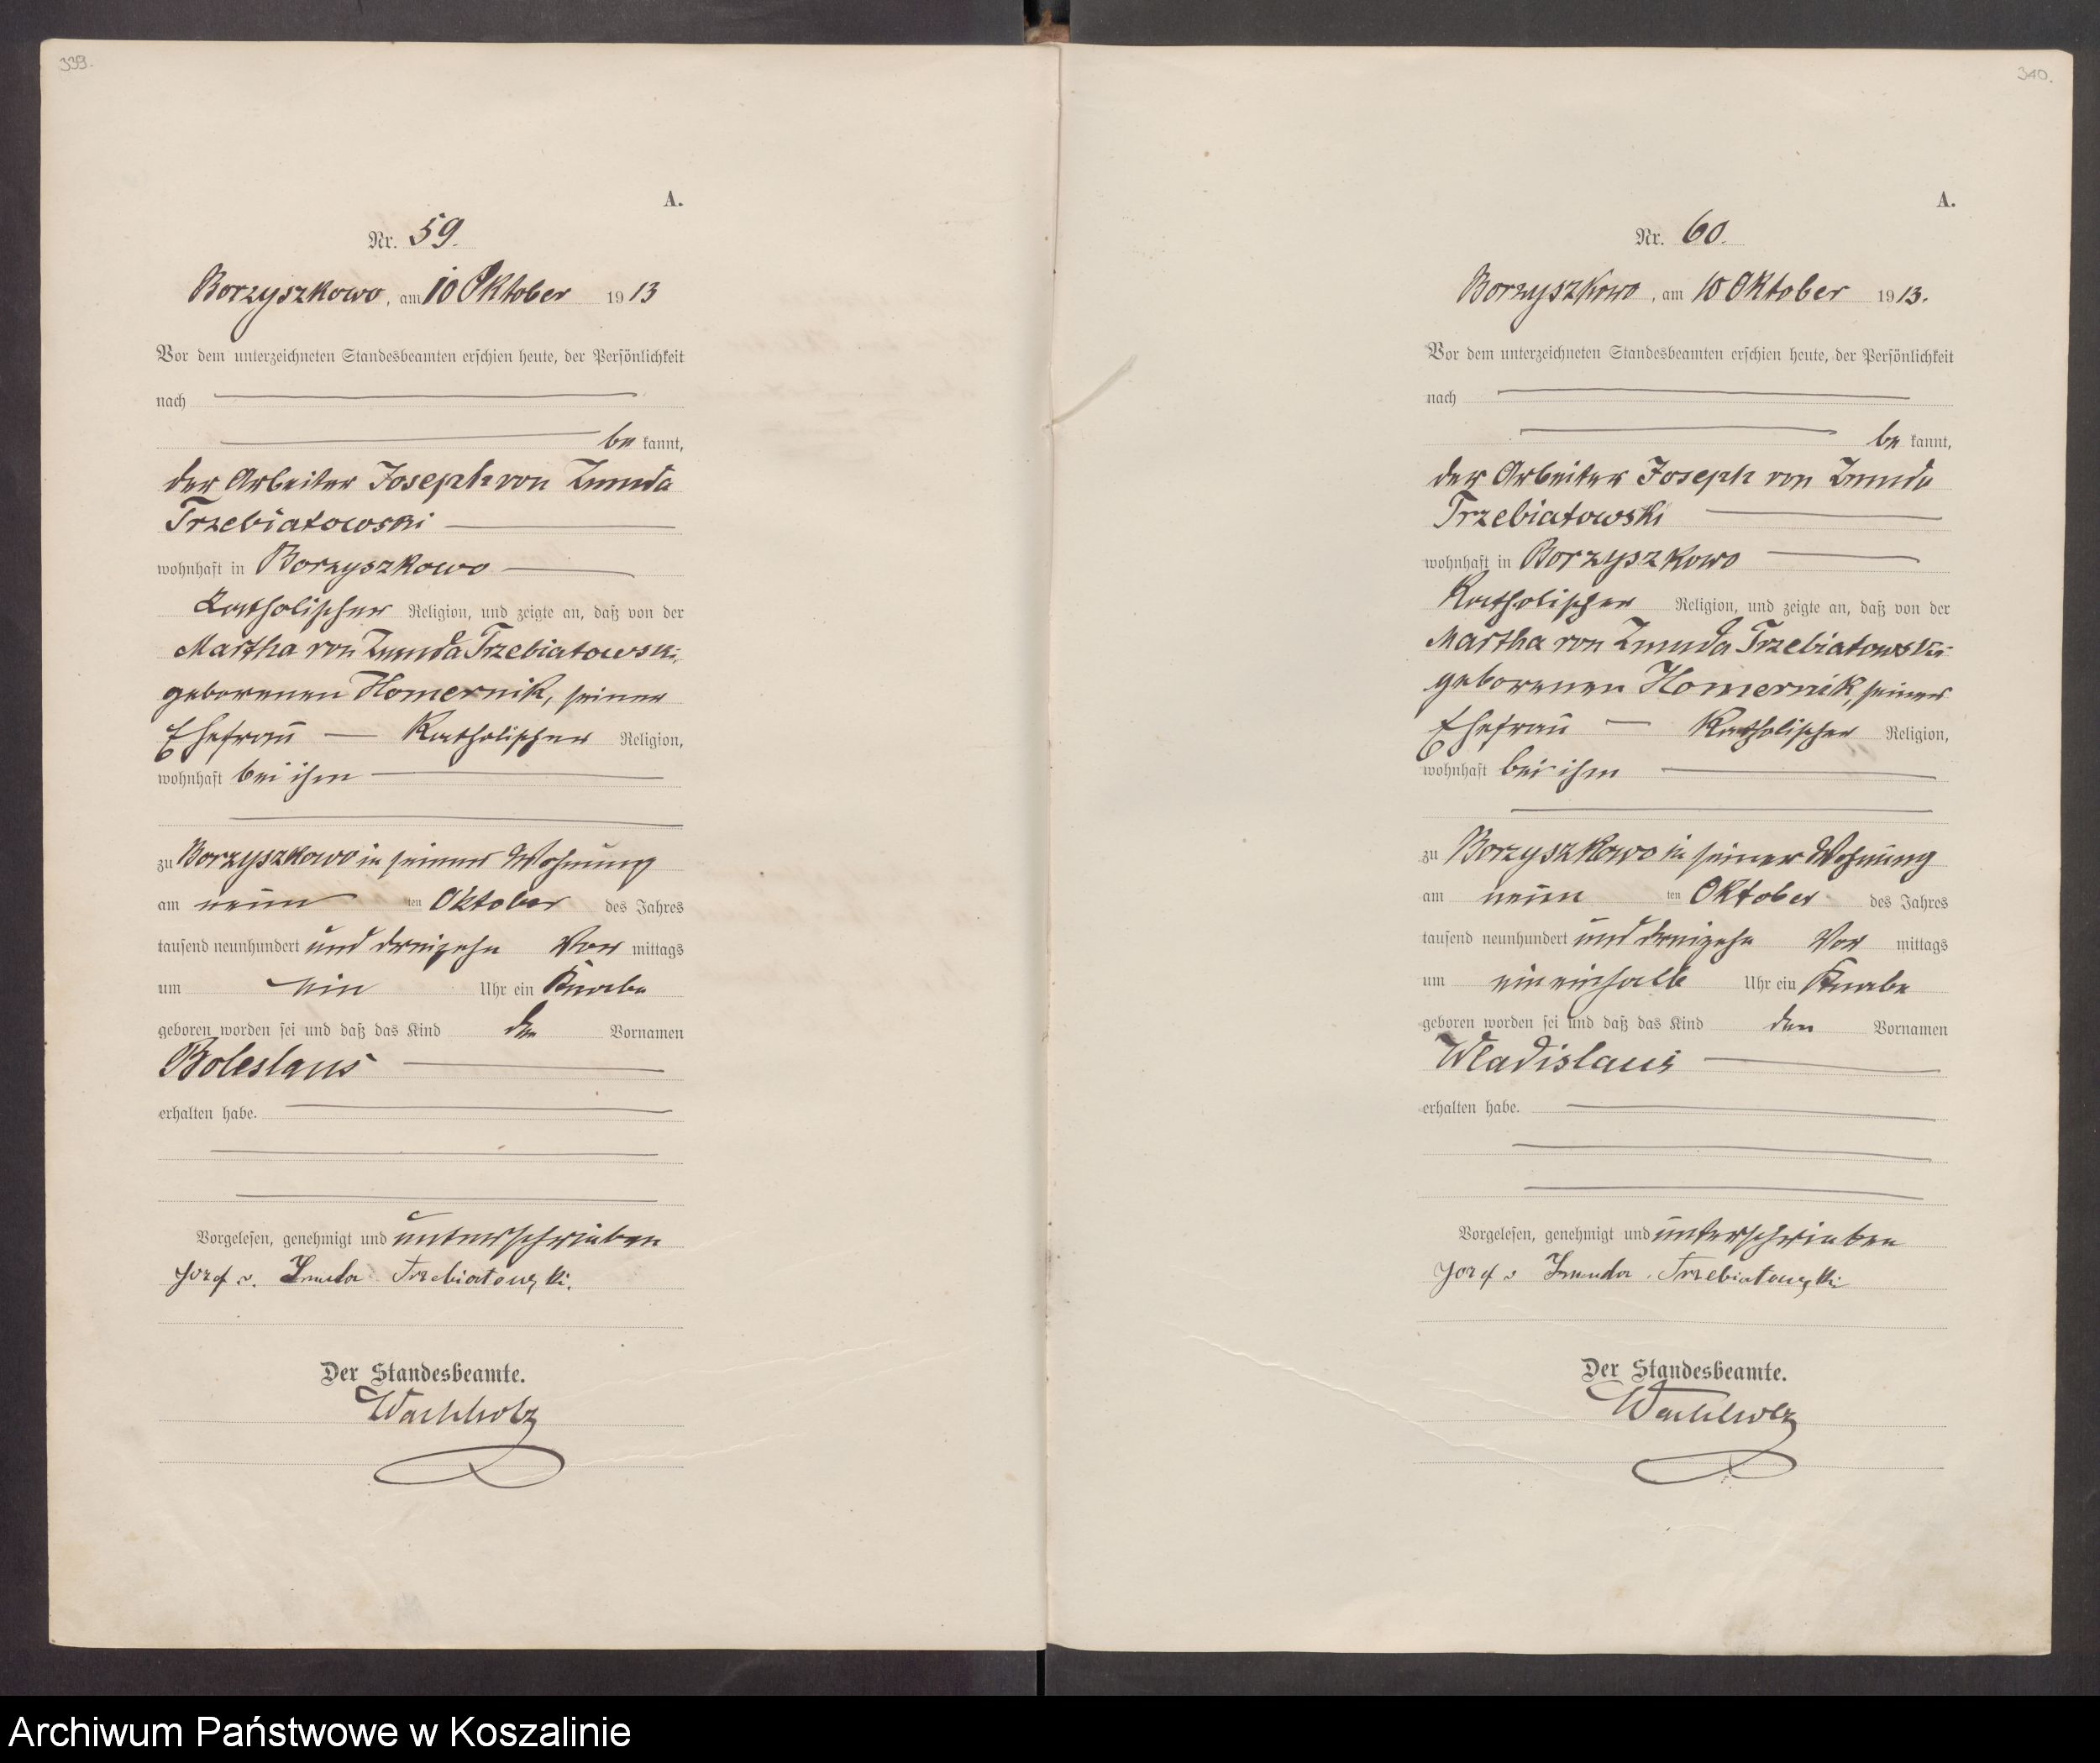 339.
A.
Nr. 59.
Borzyszkowo, am 10 Oktober 1913
Vor dem unterzeichneten Standesbeamten erschien heute, der Persönlichkeit
nach
be kannt,
der Arbeiter Joseph von Zmuda
Trzebiatowski
wohnhaft in Borzyszkowo
Katholischer Religion, und zeigte an, daß von der
Martha von Zmuda Trzebiatowski,
geborenen Homernik, seiner
Ehefrau — Katholischer Religion,
wohnhaft bei ihm
zu Borzyszkowo in seiner Wohnung
am neun ten Oktober des Jahres
tausend neunhundert und dreizehn Vor mittags
um ein Uhr ein Knabe
geboren worden sei und daß das Kind den Vornamen
Boleslaus
erhalten habe.
Vorgelesen, genehmigt und unterschrieben
Jozef v. Zmuda Trzebiatowski.
Der Standesbeamte.
Wachholz
340.
A.
Nr. 60.
Borzyszkowo, am 10 Oktober 1913.
Vor dem unterzeichneten Standesbeamten erschien heute, der Persönlichkeit
nach
be kannt,
der Arbeiter Joseph von Zmuda
Trzebiatowski
wohnhaft in Borzyszkowo
Katholischer Religion, und zeigte an, daß von der
Martha von Zmuda Trzebiatowski
geborenen Homernik, seiner
Ehefrau — Katholischer Religion,
wohnhaft bei ihm
zu Borzyszkowo in seiner Wohnung
am neun ten Oktober des Jahres
tausend neunhundert und dreizehn Vor mittags
um ein einhalb Uhr ein Knabe
geboren worden sei und daß das Kind den Vornamen
Wladislaus
erhalten habe.
Vorgelesen, genehmigt und unterschrieben
Jozef v Zmuda Trzebiatowski
Der Standesbeamte.
Wachholz
Archiwum Państwowe w Koszalinie